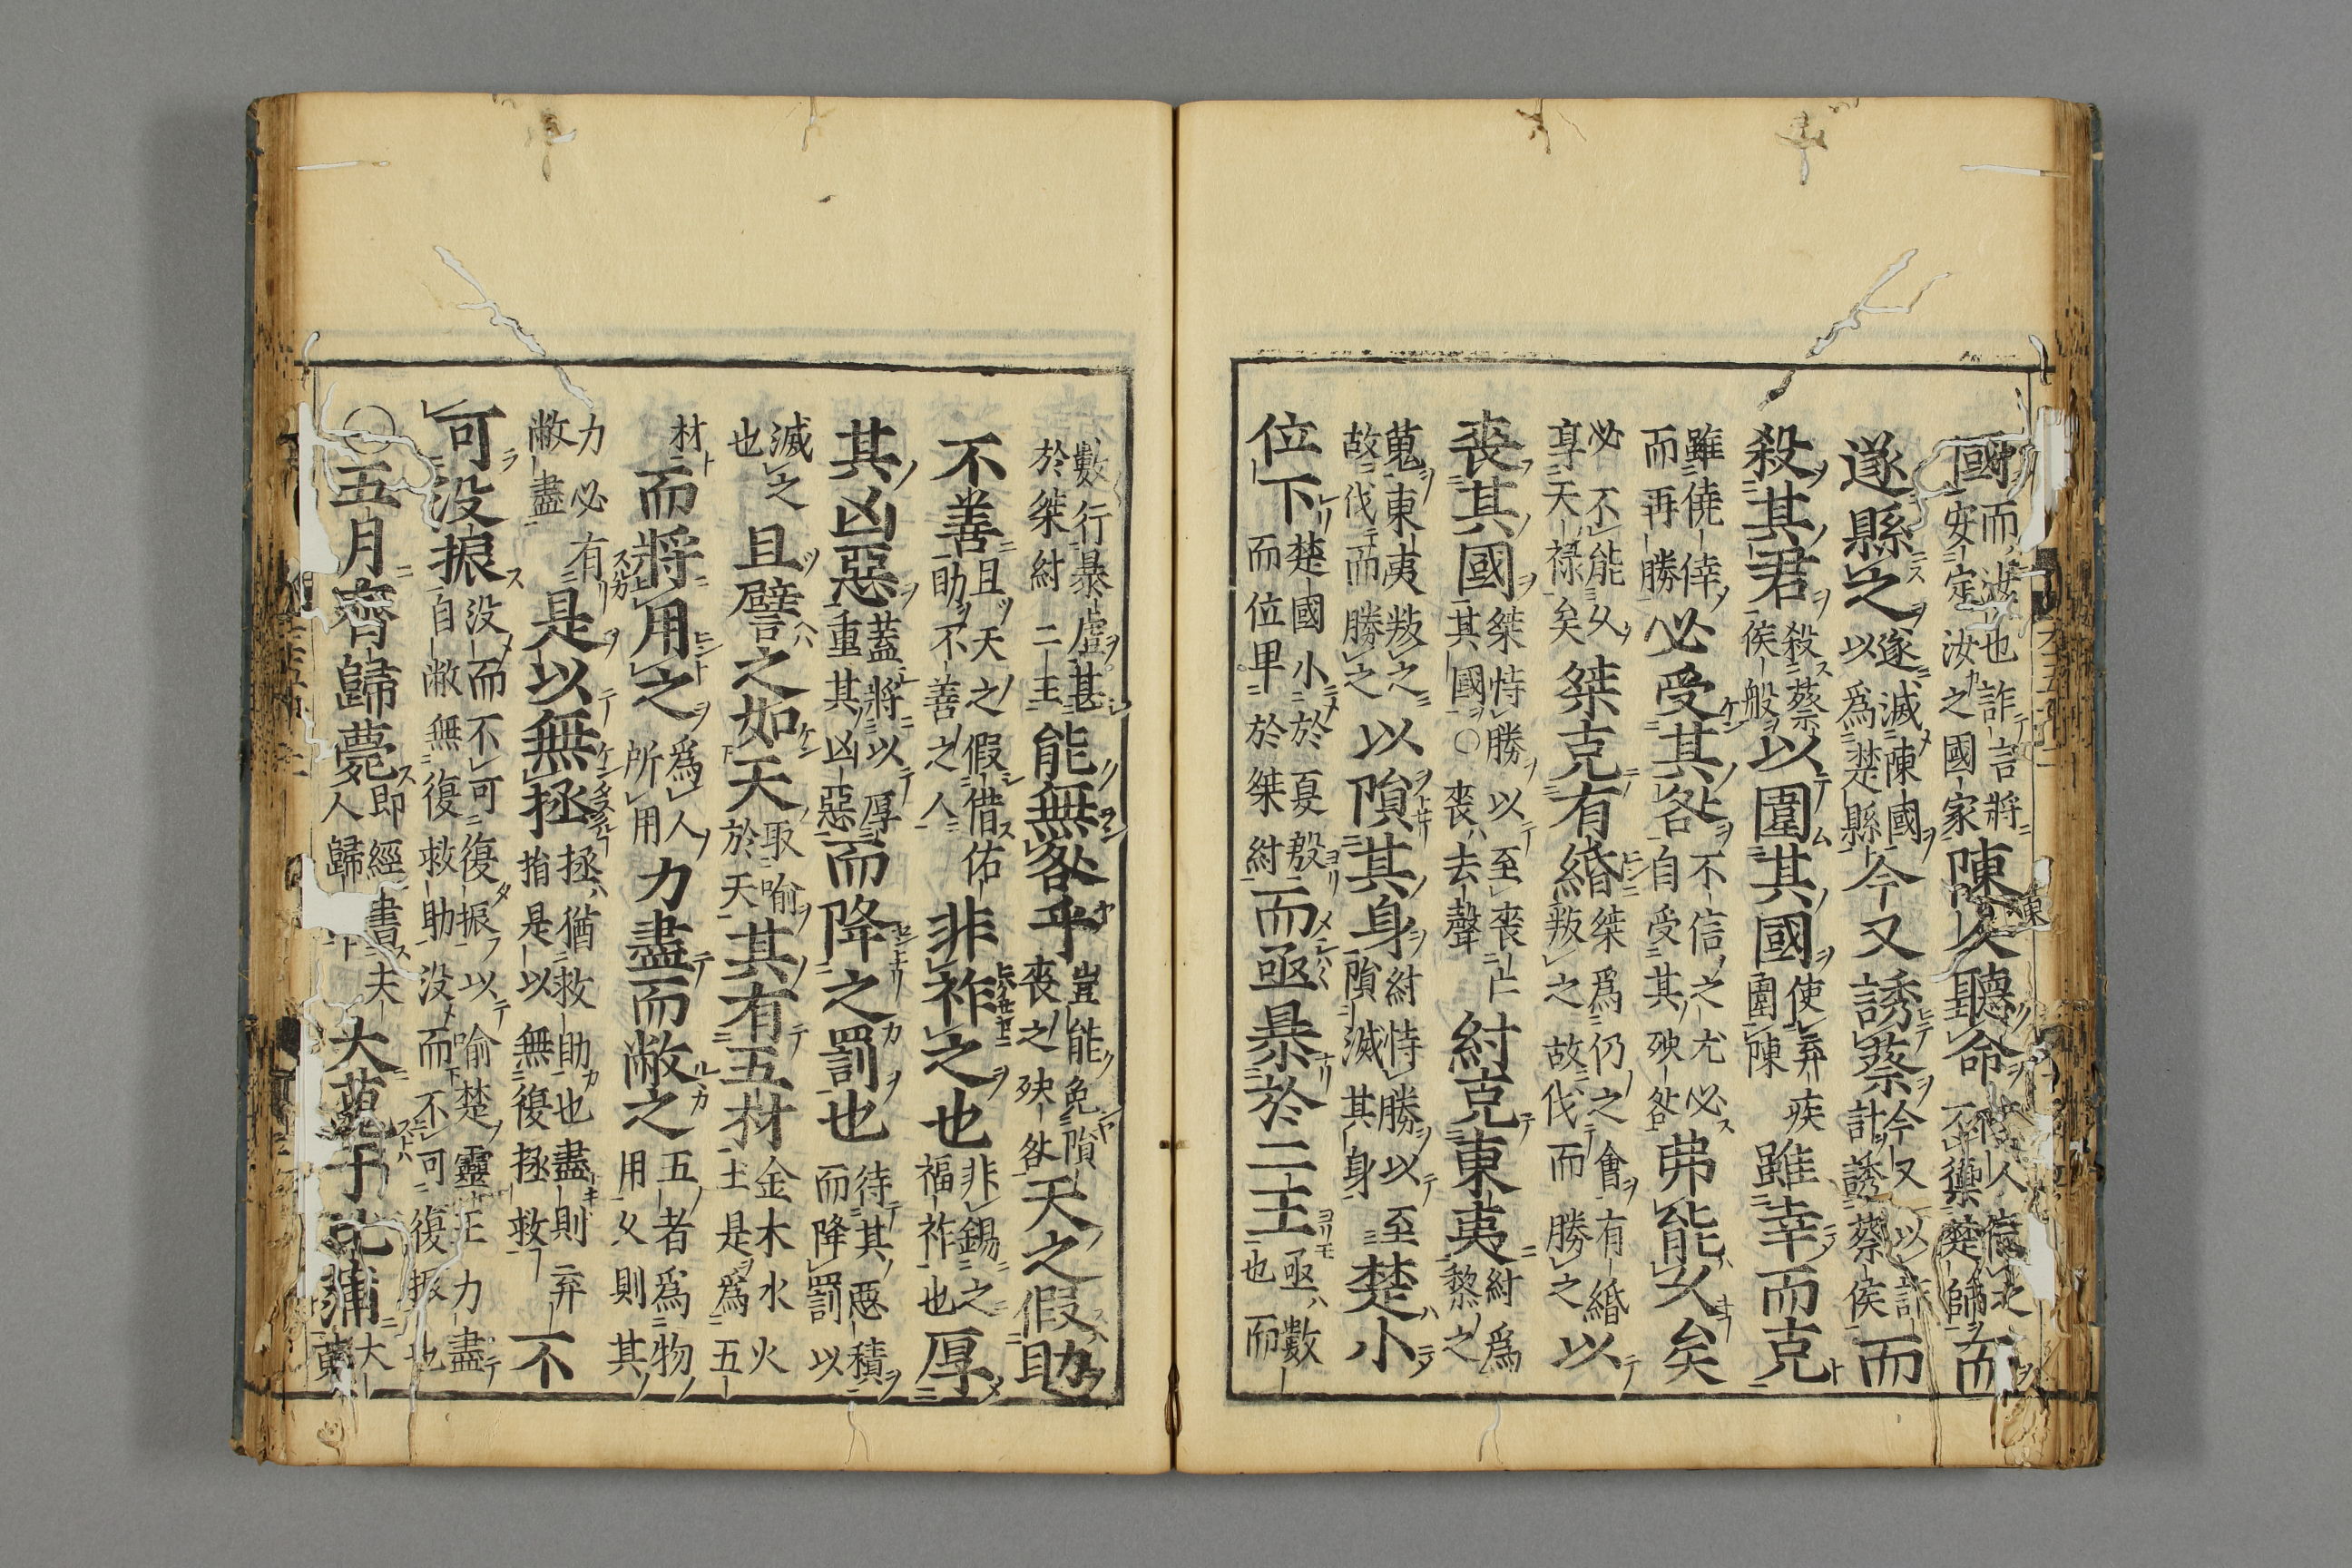 國而汝也詐言將安定汝之國家陳人聽命人信之不禦楚師而
遂縣之遂滅陳國以爲楚縣今又誘蔡今又以詐計誘蔡侯而
殺其君殺蔡侯般以圍其國使弃疾圍陳雖幸而克
雖僥倖而再勝必受其咎不信之尤必自受其殃咎弗能久矣
必不能久享天禄矣桀克有緡桀爲仍之會有緡叛之故伐而勝之以
喪其國桀恃勝以至喪亡其國〇喪去聲紂克東夷紂爲黎之
蒐東夷叛之故伐而勝之以隕其身紂恃勝以至隕滅其身楚小
位下楚國小於夏殷而位卑於桀紂而亟暴於二王亟數也而
數行暴虐甚於桀紂二王能無咎乎豈能免隕喪之殃咎天之假助
不善且天之假借佑助不善之人非祚之也非錫之福祚也厚
其凶惡蓋將以厚重其凶惡而降之罰也待其惡積而降罰以
滅之也且譬之如天取喻於天其有五材金木水火土是爲五
材而將用之爲人所用力盡而敝之五者爲物用久則其
力必有敝盡是以無拯拯猶救助也盡則弃指是以無復拯救不
可没振没而不可復振以喻楚靈王力盡自敝無復救助没而不可復振也
〇五月齊歸薨即經書夫人歸大蒐于比蒲大